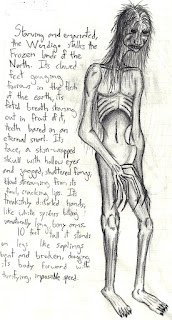 Starving and emaciated,
the Wendigo stalks the
frozen lands of the
North. Its clawed
feet gouging
furrows in the flesh
of the earth, its
fetid breath steaming
out in front of it,
teeth bared in an
eternal snarl. Its
face, a skin-wrapped
skull with hollow eyes
and jagged, shattered fangs,
blood streaming from its
foul, cracking lips. Its
freakishly distorted hands,
like white spiders
unnaturally long, bony arms.
10 feet tall it stands
on legs like saplings
bent and broken, dragging
its body forward with
horrifying, impossible speed.